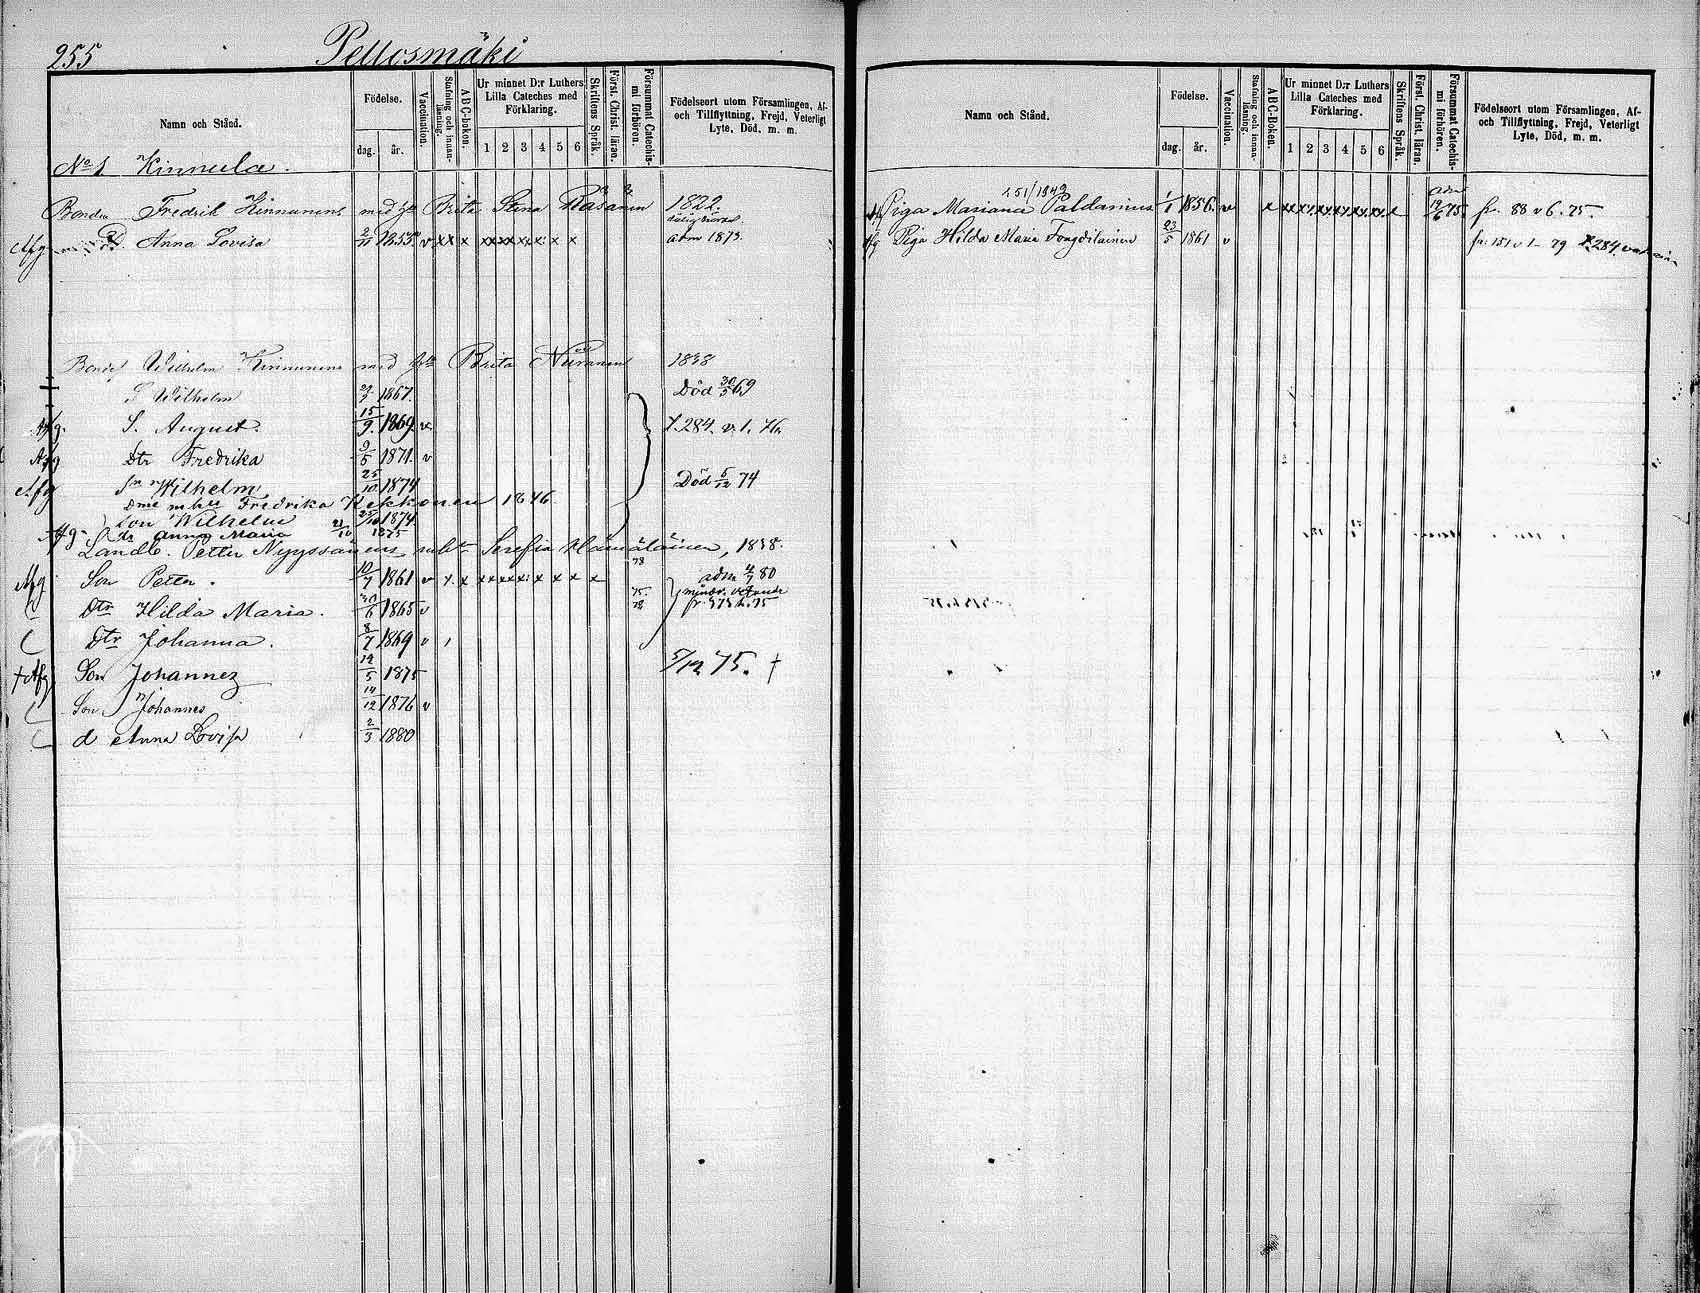 255 Pellosmäki
Namn och Stånd.
Födelse.
dag. år.
Vaccination.
Stafning och innanläsning.
ABC-boken.
Ur minnet D:r Luthers Lilla Cateches med Förklaring.
1 2 3 4 5 6
Skriftens Språk.
Först. Christ. läran.
Försummat Catechismi förhören.
Födelseort utom Församlingen, Af- och Tillflyttning, Frejd, Veterligt Lyte, Död, m. m.
No 1 Kinnula.
Bonden Fredrik Kinnunens med h:u Brita Stena Räsänen 1822.
Afg Anna Lovisa 2/11 1855 v xx x xxxxxxx: x x adm 1873.
Bondes Wilhelm Kinnunens med Brita Niiranen 1838
S Wilhelm 1867. Död 30/5 69
Afg. S. August. 15/9. 1869 v. X. 284. v. 1. 76.
Afg Dtr Fredrika 9/5 1871. v
Afg Sn Wilhelm 25/10 1874 Död 5/12 74
Dme m hu Fredrika Kekkonen 1846
Son Wilhelm 25/10 1874
Afg. dr Anna Maria 21/10 1875
Landb. Petter Nyyssönens m ht Serefia Hämäläinen, 1838.
78
Afg Son Petter. 10/7 1861 v x x xxxxx: x x x x adm 4/7 80
Dtr Hilda Maria. 30/6 1865 v 75. 78
Dtr Johanna. 8/7 1869 v 1
† Afg Son Johannez 19/5 1875 5/12 75. †
Son Johannes 14/12 1876 v
d Anna Lovisa 2/3 1880
Namn och Stånd.
Födelse.
dag. år.
Vaccination.
Stafning och innanläsning.
ABC-Boken.
Ur minnet D:r Luthers Lilla Cateches med Förklaring.
1 2 3 4 5 6
Skriftens Språk.
Först. Christ. läran.
Försummat Catechismi förhören.
Födelseort utom Församlingen, Af- och Tillflyttning, Frejd, Veterligt Lyte, Död, m. m.
Piga Mariana Paldanius 1/1 1856. v x xx xy xx xx xx xx x adm 19/6 75. fr. 88 v 6. 75.
Afg Piga Hilda Maria 23/5 1861 v fr. 151 v 1 - 79 X 284